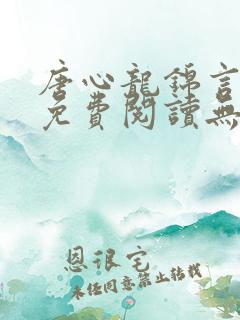 唐心龍錦言
免費閱讀無
恩很宅
未经同意禁止转载